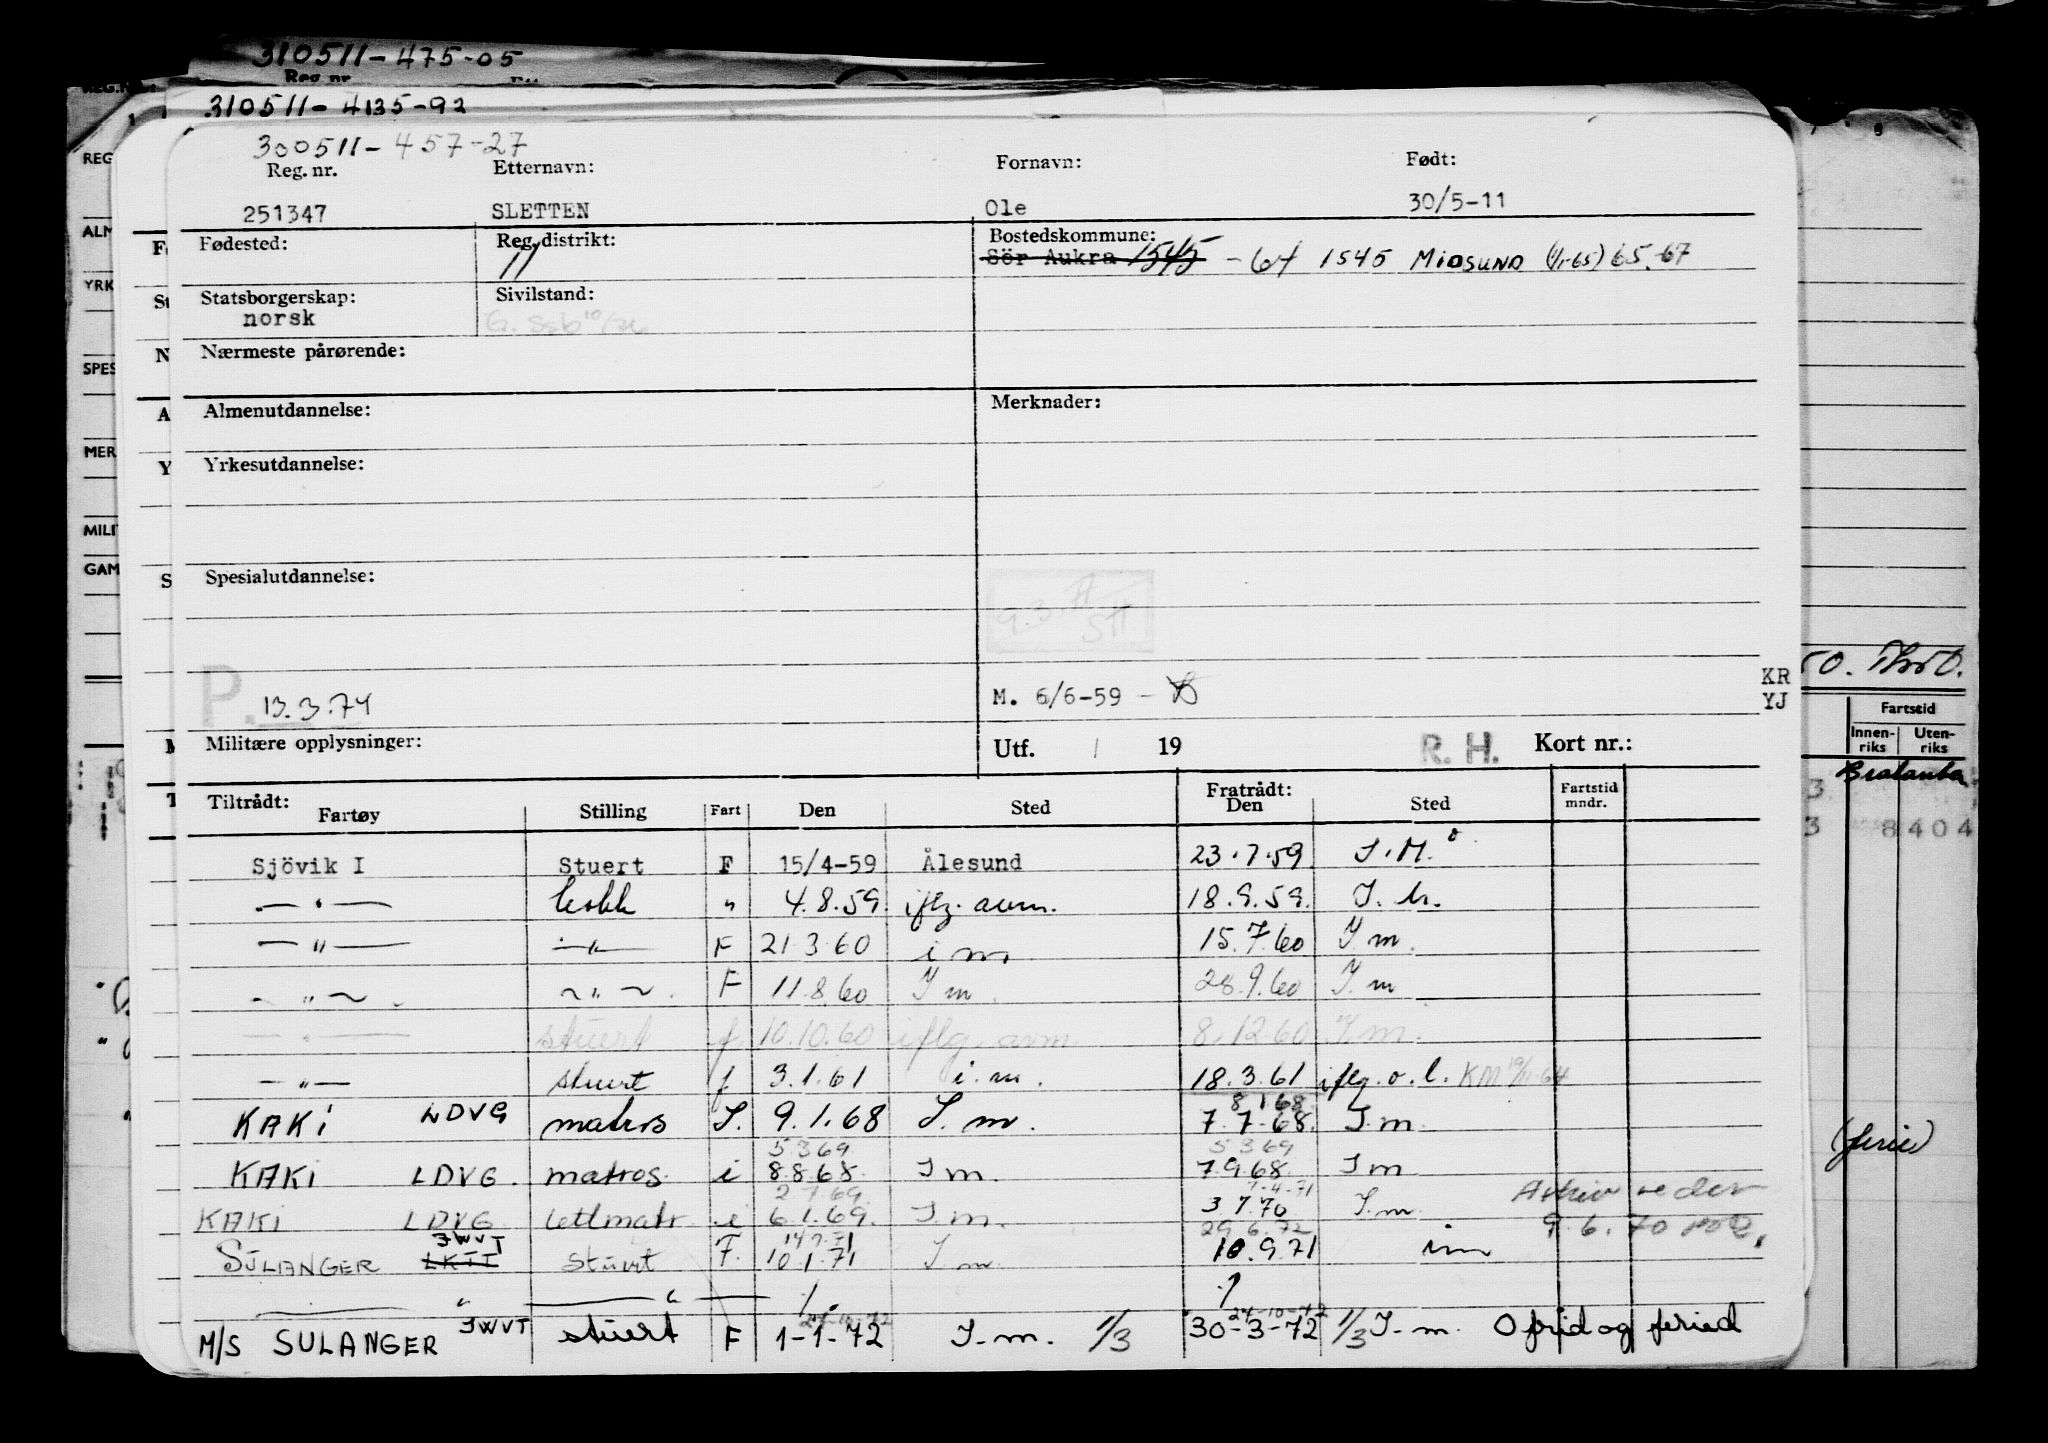 310511-475-05
Reg. nr.
310511-4135-92
300511-457-27
Reg. nr. Etternavn: Fornavn: Født:
251347 SLETTEN Ole 30/5-11
Fødested: Reg. distrikt: Bostedskommune:
11 Sör Aukra 1545 - 64 1545 MIDSUND (1/1-65) 65.-67
Statsborgerskap: Sivilstand:
norsk G. Ssb 10/76
Nærmeste pårørende:
Almenutdannelse: Merknader:
Yrkesutdannelse:
Spesialutdannelse:
P. 13.3.74 M. 6/6-59 - KR
YJ
Militære opplysninger: Utf. / 19 R. H. Kort nr.:
Tiltrådt: Fartøy Stilling Fart Den Sted Fratrådt: Den Sted Fartstid mndr.
Sjövik I Stuert F 15/4-59 Ålesund 23.7.59 I.M.
— " — kokk " 4.8.59. iflg. avm. 18.9.59. I.m.
— " — — " — F 21.3.60 i m 15.7.60 I m.
— " — — " — F 11.8.60 I m. 28.9.60 I.m
— " — stuert f 10.10.60 iflg. avm 8.12.60 I.m.
— " — stuert f 3.1.61 i.m. 18.3.61 iflg.o.l. KM 19/11-64
8.1.68
KAKI LDVG matros I. 9.1.68 I.m. 7.7.68. I.m
5.3.69 5.3.69
KAKI LDVG. matros. i 8.8.68. I m. 7.9.68. I m
2.7.69. 7.4.71 Arkiv
KAKI LDVG lettmatr. i 6.1.69. I m. 3.7.70 I.m 9.6.70
JWVT 14.7.71 29.6.72
SULANGER LKTT Stuert F. 10.1.71 I m. 10.9.71 im
— " — — " — ./. ./.
24-10-72 24-10-72
M/S SULANGER JWVT stuert F 1-1-72 I-m. 1/3 30-3-72 1/3 I-m. O frid og feried
REG
ALM
YRK
SPES
MER
MILI
GAM
Fartstid
Innen-riks Uten-riks
8404
(ferie)